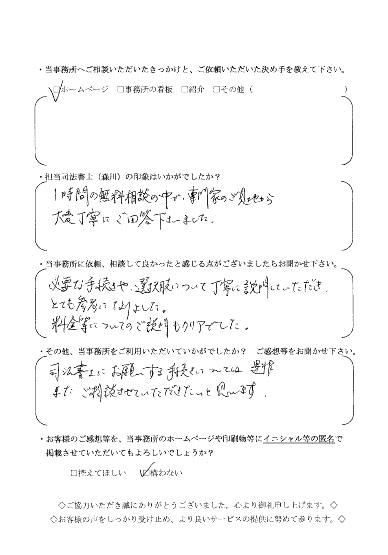 ・当事務所へご相談いただいたきっかけと、ご依頼いただいた決め手を教えて下さい。
☑ホームページ　□事務所の看板　□紹介　□その他（　　　　　　　　）
・担当司法書士（森川）の印象はいかがでしたか？
1時間の無料相談の中で、専門家のご見地から
大変丁寧にご回答下さいました。
・当事務所に依頼、相談して良かったと感じる点がございましたらお聞かせ下さい。
必要な手続きや、選択肢について丁寧に説明していただき、
とても参考になりました。
料金等についてのご説明もクリアでした。
・その他、当事務所をご利用いただいていかがでしたか？　ご感想等をお聞かせ下さい。
司法書士にお願いする手続きについては
また ご相談させていただきたいと思います。
・お客様のご感想等を、当事務所のホームページや印刷物等にイニシャル等の匿名で
掲載させていただいてもよろしいでしょうか？
□控えてほしい　☑構わない
◇ご協力いただき誠にありがとうございました。心より御礼申し上げます。◇
◇お客様の声をしっかり受け止め、より良いサービスの提供に努めて参ります。◇